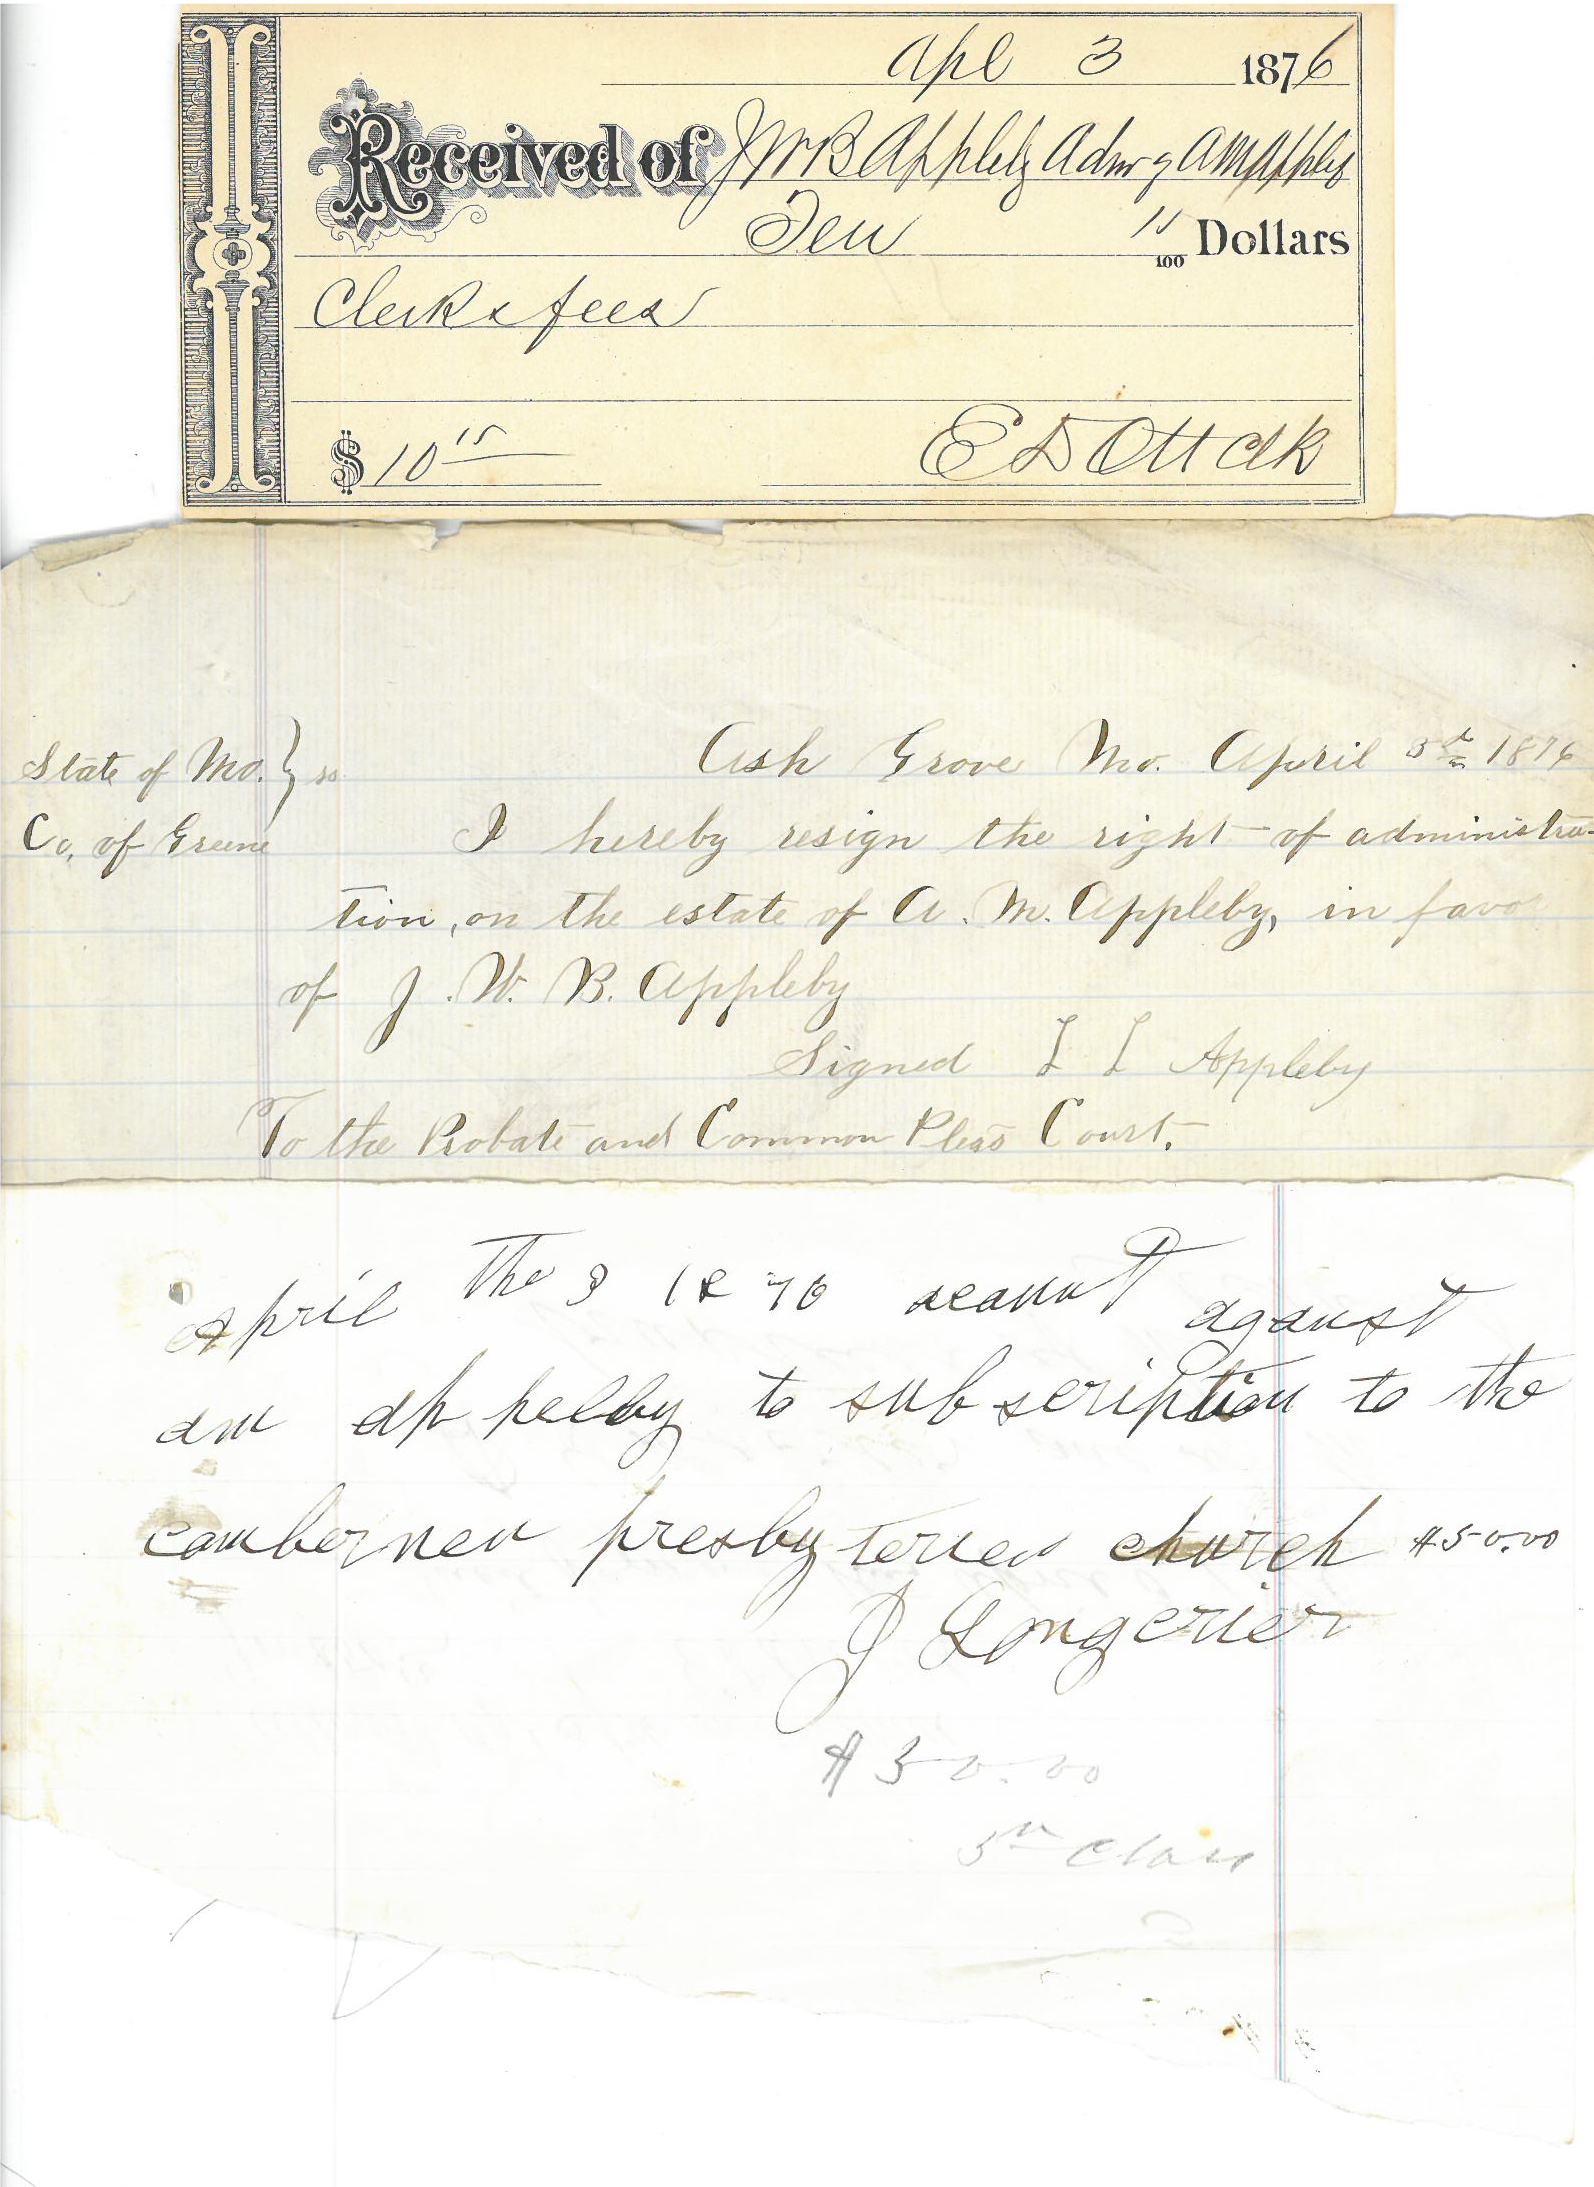 Apl 3 1876
Received of J W B Appleby Admr of A M Appleby
Ten 15/100 Dollars
Clerks fees
$ 10 15
E D Ott Clk
State of Mo. } ss Ash Grove Mo. April 3rd 1876
Co. of Greene I hereby resign the right of administra-
tion, on the estate of A. M. Appleby, in favor
of J. W. B. Appleby
Signed L L Appleby
To the Probate and Common Pleas Court.
April the 3 1876 acount against
am appelby to subscription to the
combernen presby terien church $50.00
J Longerier
$50.00
5th Class